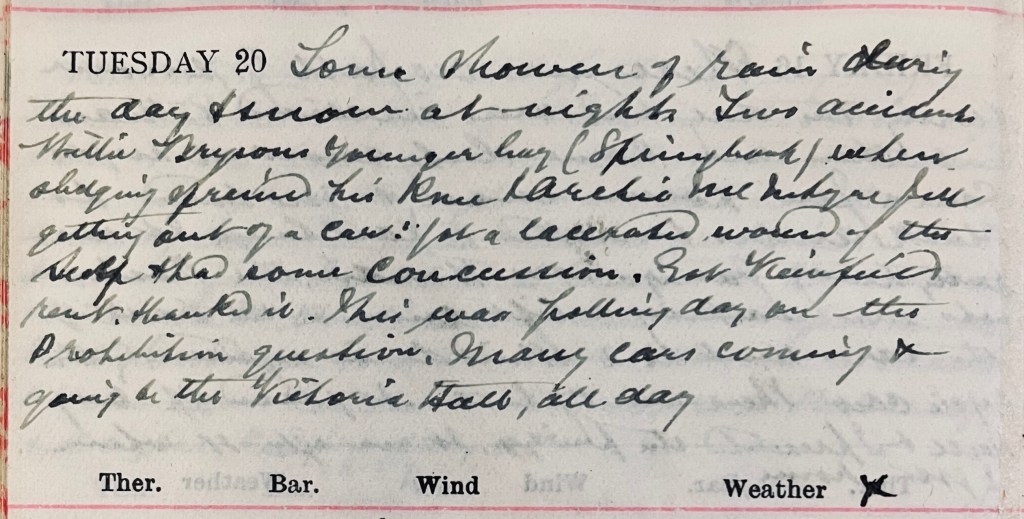 TUESDAY 20 Some showers of rain during
the day & snow at night. Two accidents
Willie Brysons younger boy (Springbank) when
sledging sprained his knee & Archie McIntyre fell
getting out of a car & got a lacerated wound of the
scalp & had some concussion. Got
rent. & banked it. This was polling day on the
Prohibition question. Many cars coming &
going to the Victoria Hall, all day
Ther. Bar. Wind Weather